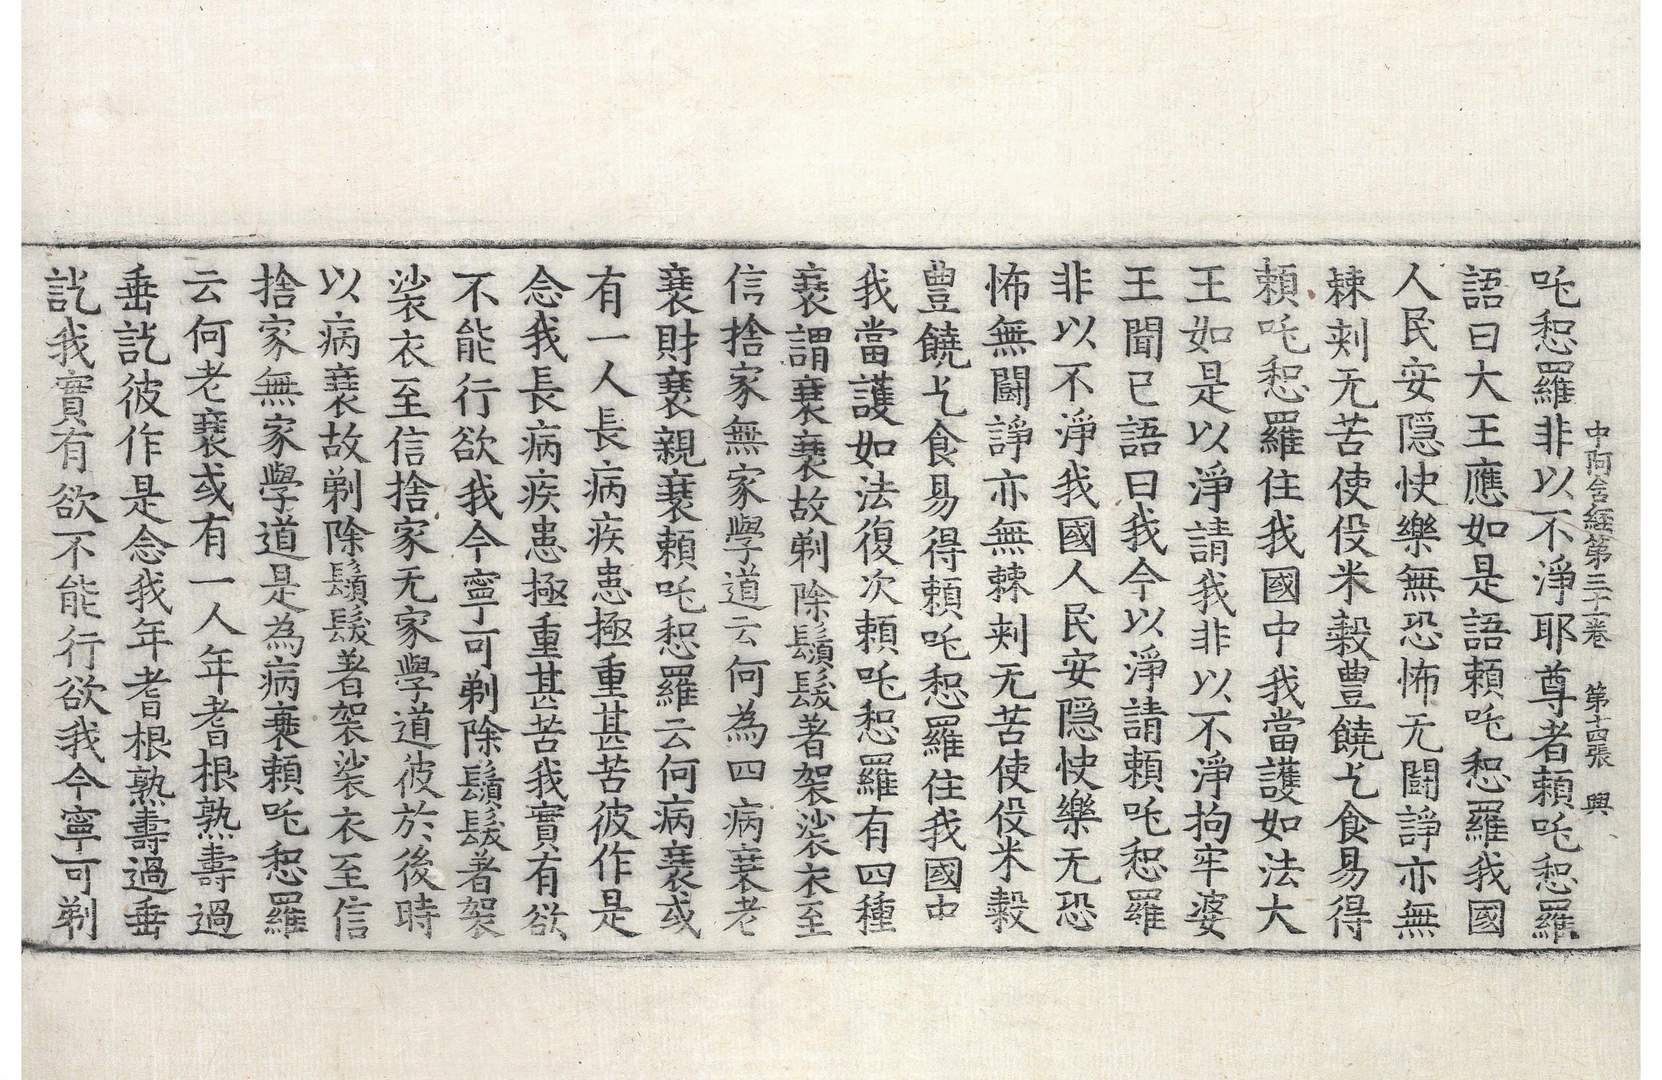 中阿含經第三十一卷 第十四張 興
吒惒羅非以不淨耶尊者賴吒惒羅
語曰大王應如是語賴吒惒羅我國
人民安隱快樂無恐怖无鬪諍亦無
棘刺无苦使役米穀豊饒乞食易得
賴吒惒羅住我國中我當護如法大
王如是以淨請我非以不淨拘牢婆
王聞已語曰我今以淨請賴吒惒羅
非以不淨我國人民安隱快樂无恐
怖無鬪諍亦無棘刺无苦使役米穀
豊饒乞食易得賴吒惒羅住我國中
我當護如法復次賴吒惒羅有四種
衰謂衰衰故剃除鬚髮著袈裟衣至
信捨家無家學道云何為四病衰老
衰財衰親衰賴吒惒羅云何病衰或
有一人長病疾患極重甚苦彼作是
念我長病疾患極重甚苦我實有欲
不能行欲我今寧可剃除鬚髮著袈
裟衣至信捨家无家學道彼於後時
以病衰故剃除鬚髮著袈裟衣至信
捨家無家學道是為病衰賴吒惒羅
云何老衰或有一人年耆根熟壽過
垂訖彼作是念我年耆根熟壽過垂
訖我實有欲不能行欲我今寧可剃